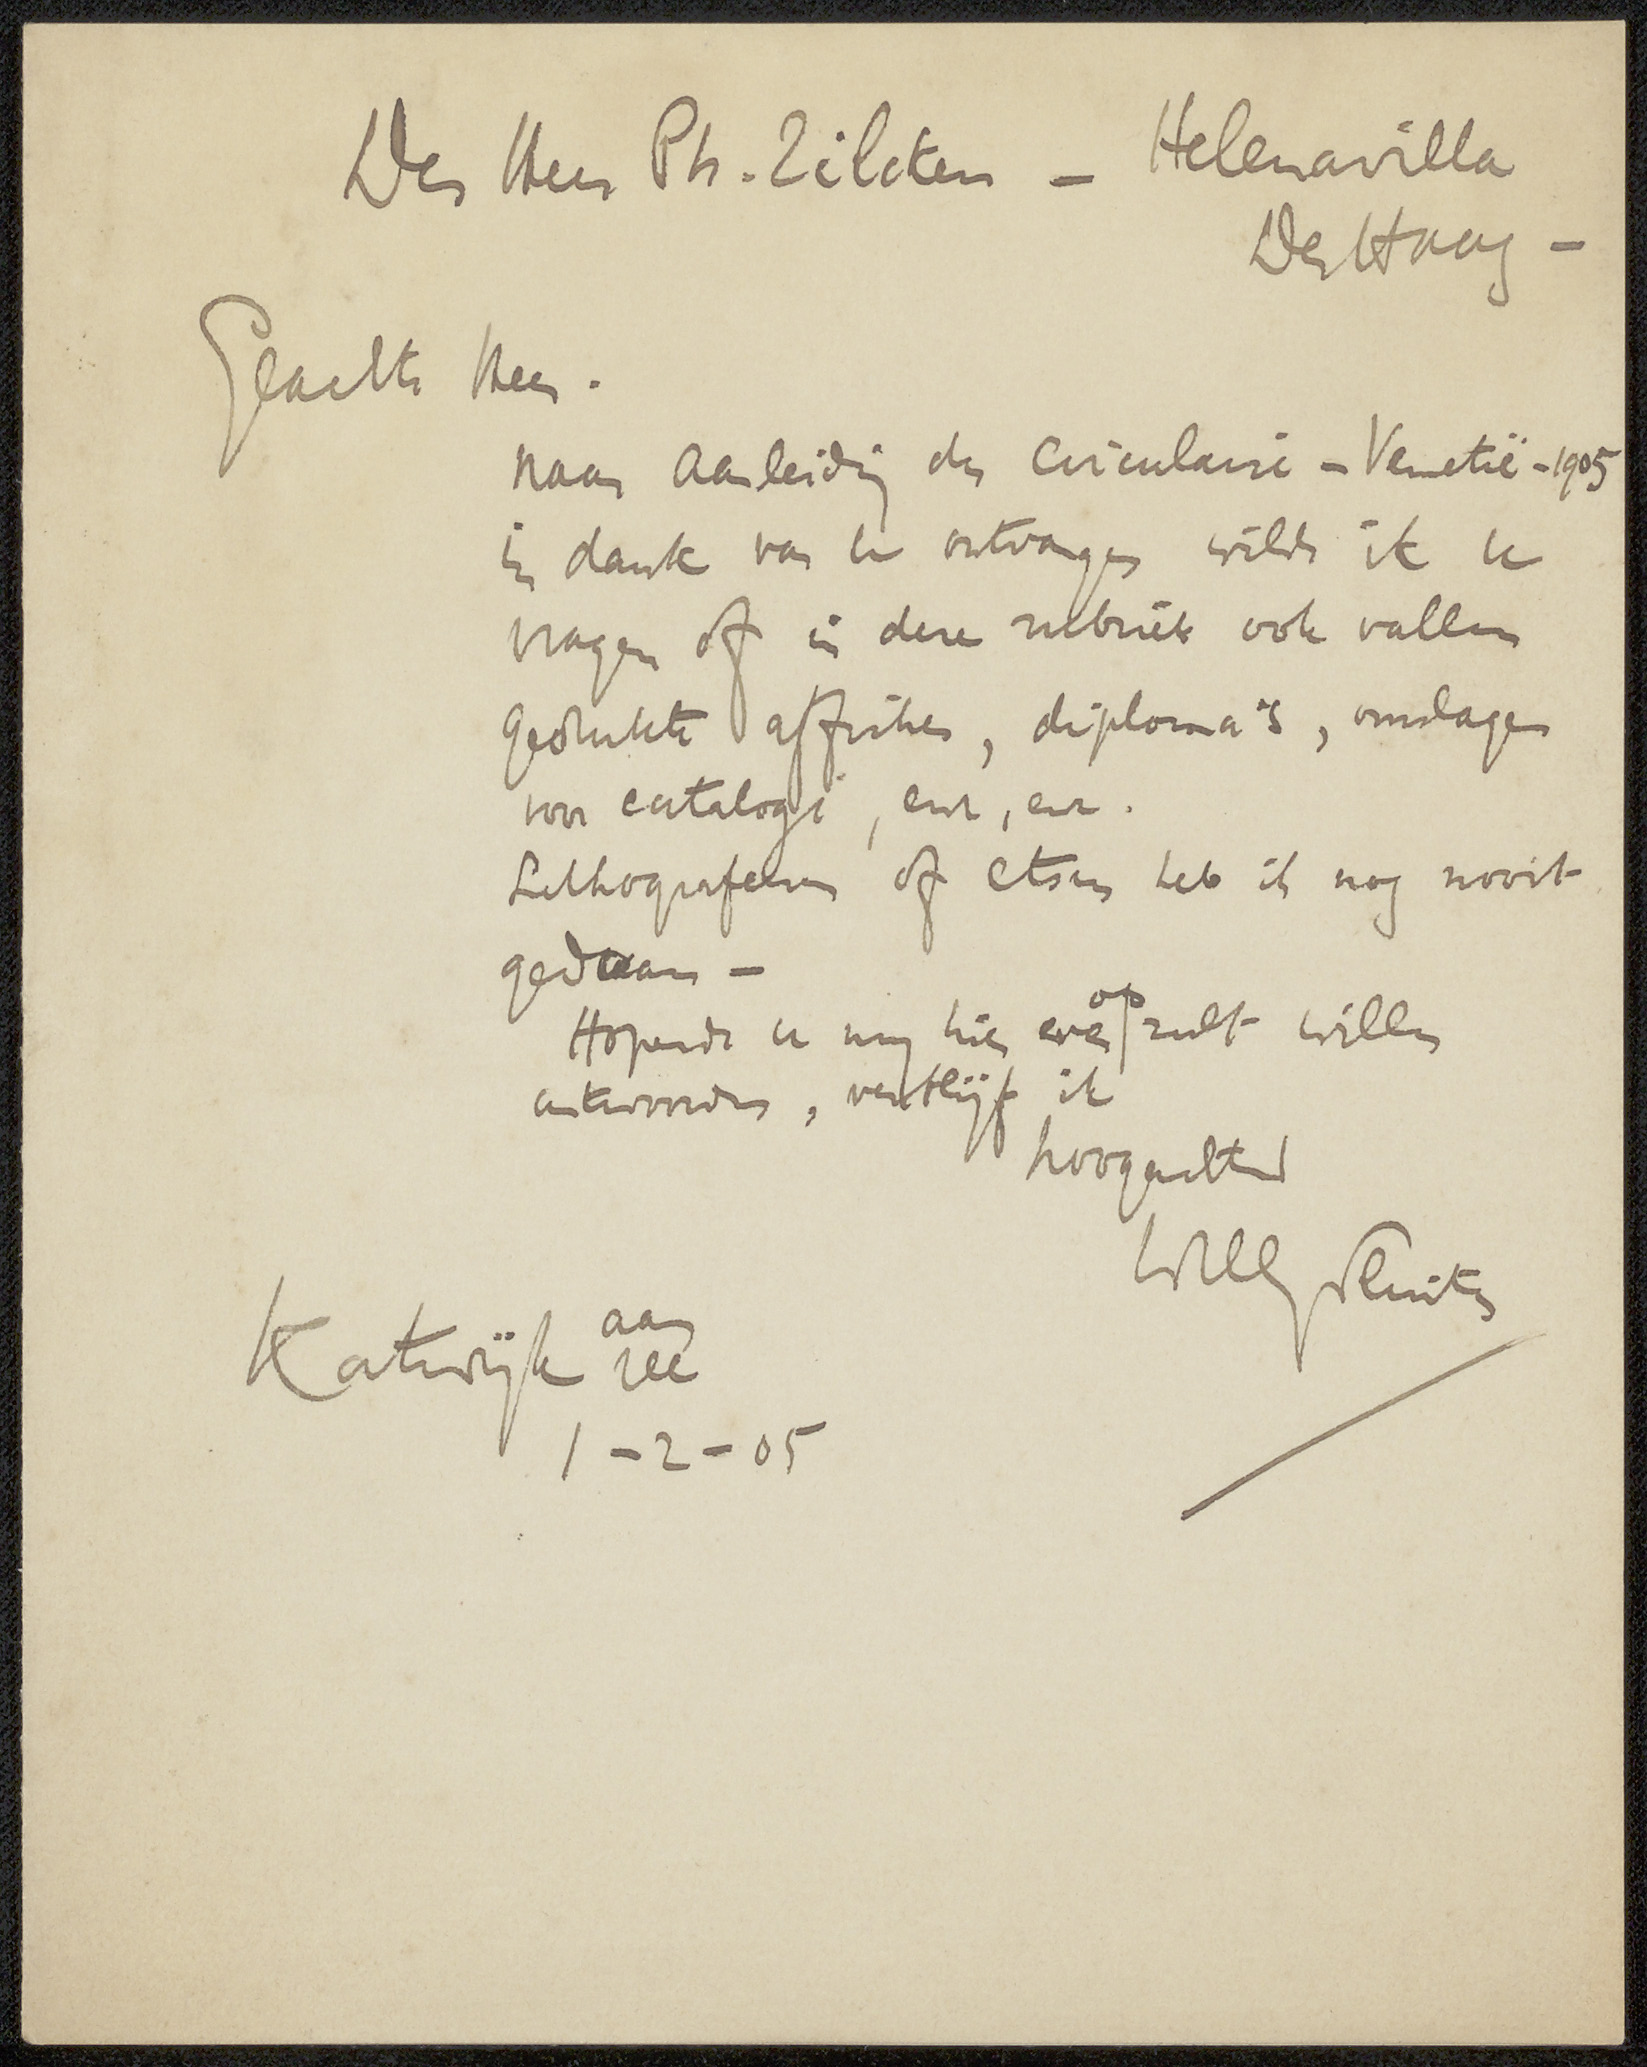 Den Heer Ph. Zilcken – Helenavilla
Den Haag –
Geachte Heer.
naar aanleiding der circulaire – Venetië – 1905
in dank van u ontvangen wilde ik u
vragen of in deze rubriek ook vallen
gedrukte affiches, diploma's, omslagen
voor catalogi, enz, enz.
Lithografeeren of etsen heb ik nog nooit
gedaan –
Hopende u my hier even op zult willen
antwoorden, verblijf ik
hoogachtend
Willy Sluiter
Katwijk aan
zee
1 – 2 – 05